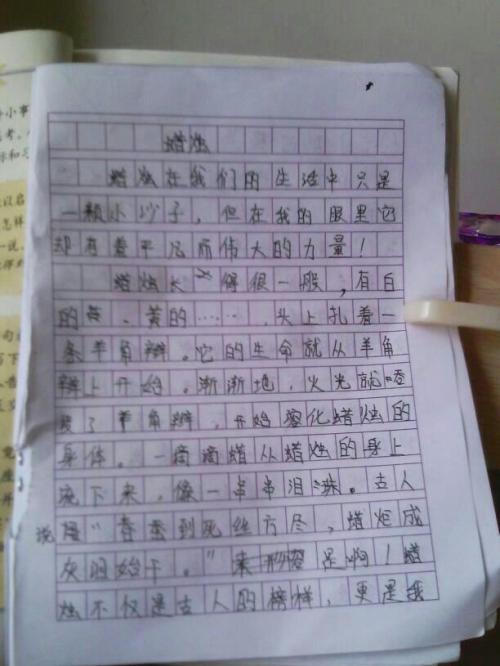 蜡烛
蜡烛在我们的生活中只是
一颗小沙子，但在我的眼里它
却有着平凡而伟大的力量！
蜡烛长得很一般，有白
的、黄的……，头上扎着一
条羊角辫。它的生命就从羊角
辫上开始。渐渐地，火光就吞
没了羊角辫，开始溶化蜡烛的
身体。一滴滴蜡从蜡烛的身上
流下来，像一串串泪珠。古人
说"春蚕到死丝方尽，蜡炬成
灰泪始干。"来形容是啊！蜡
烛不仅是古人的榜样，更是我